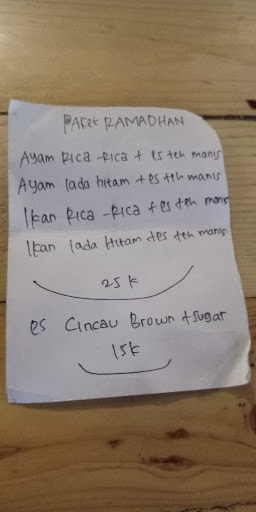 PAKET RAMADHAN
Ayam Rica -Rica + es teh manis
Ayam lada hitam + es teh manis
Ikan Rica -Rica + es teh manis
Ikan lada Hitam + es teh manis
25 k
es Cincau Brown + sugar
15k